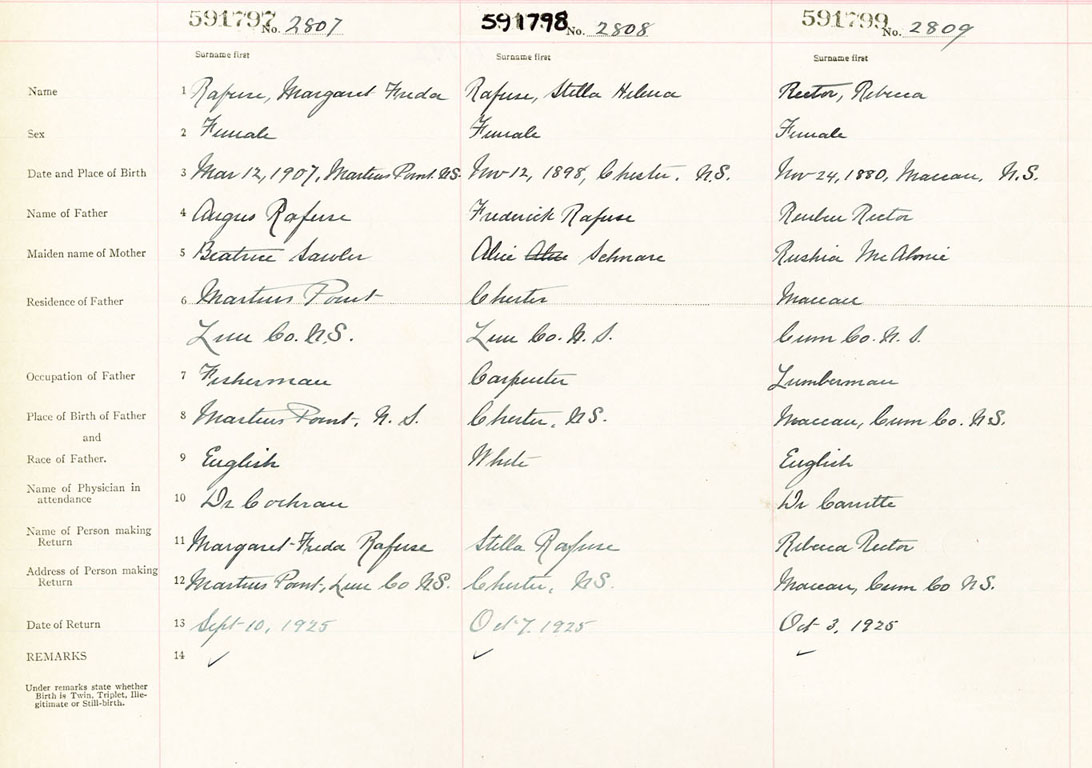 591797 No. 2807 591798 No. 2808 591799 No. 2809
Surname first Surname first Surname first
Name 1 Rafuse, Margaret Freda Rafuse, Stella Helena Rector, Rebecca
Sex 2 Female Female Female
Date and Place of Birth 3 Mar 12, 1907, Martins Point. N.S. Nov 12, 1898, Chester. N.S. Nov 24, 1880, Maccan, N.S.
Name of Father 4 Angus Rafuse Frederick Rafuse Reuben Rector
Maiden name of Mother 5 Beatrice Sawler Alice Alice Schnare Rushia McAlonie
Residence of Father 6 Martins Point Chester Maccan
Lun Co. N.S. Lun Co. N. S. Cum Co. N. S.
Occupation of Father 7 Fisherman Carpenter Lumberman
Place of Birth of Father 8 Martins Point, N. S. Chester, N.S. Maccan, Cum Co. N.S.
and
Race of Father. 9 English White English
Name of Physician in
attendance 10 Dr Cochran Dr
Name of Person making
Return 11 Margaret Freda Rafuse Stella Rafuse Rebecca Rector
Address of Person making
Return 12 Martins Point, Lun Co N.S. Chester, N.S. Maccan, Cum Co N.S.
Date of Return 13 Sept 10, 1925 Oct 7. 1925 Oct 3, 1925
REMARKS 14 ✓ ✓ ✓
Under remarks state whether
Birth is Twin, Triplet, Ille-
gitimate or Still-birth.